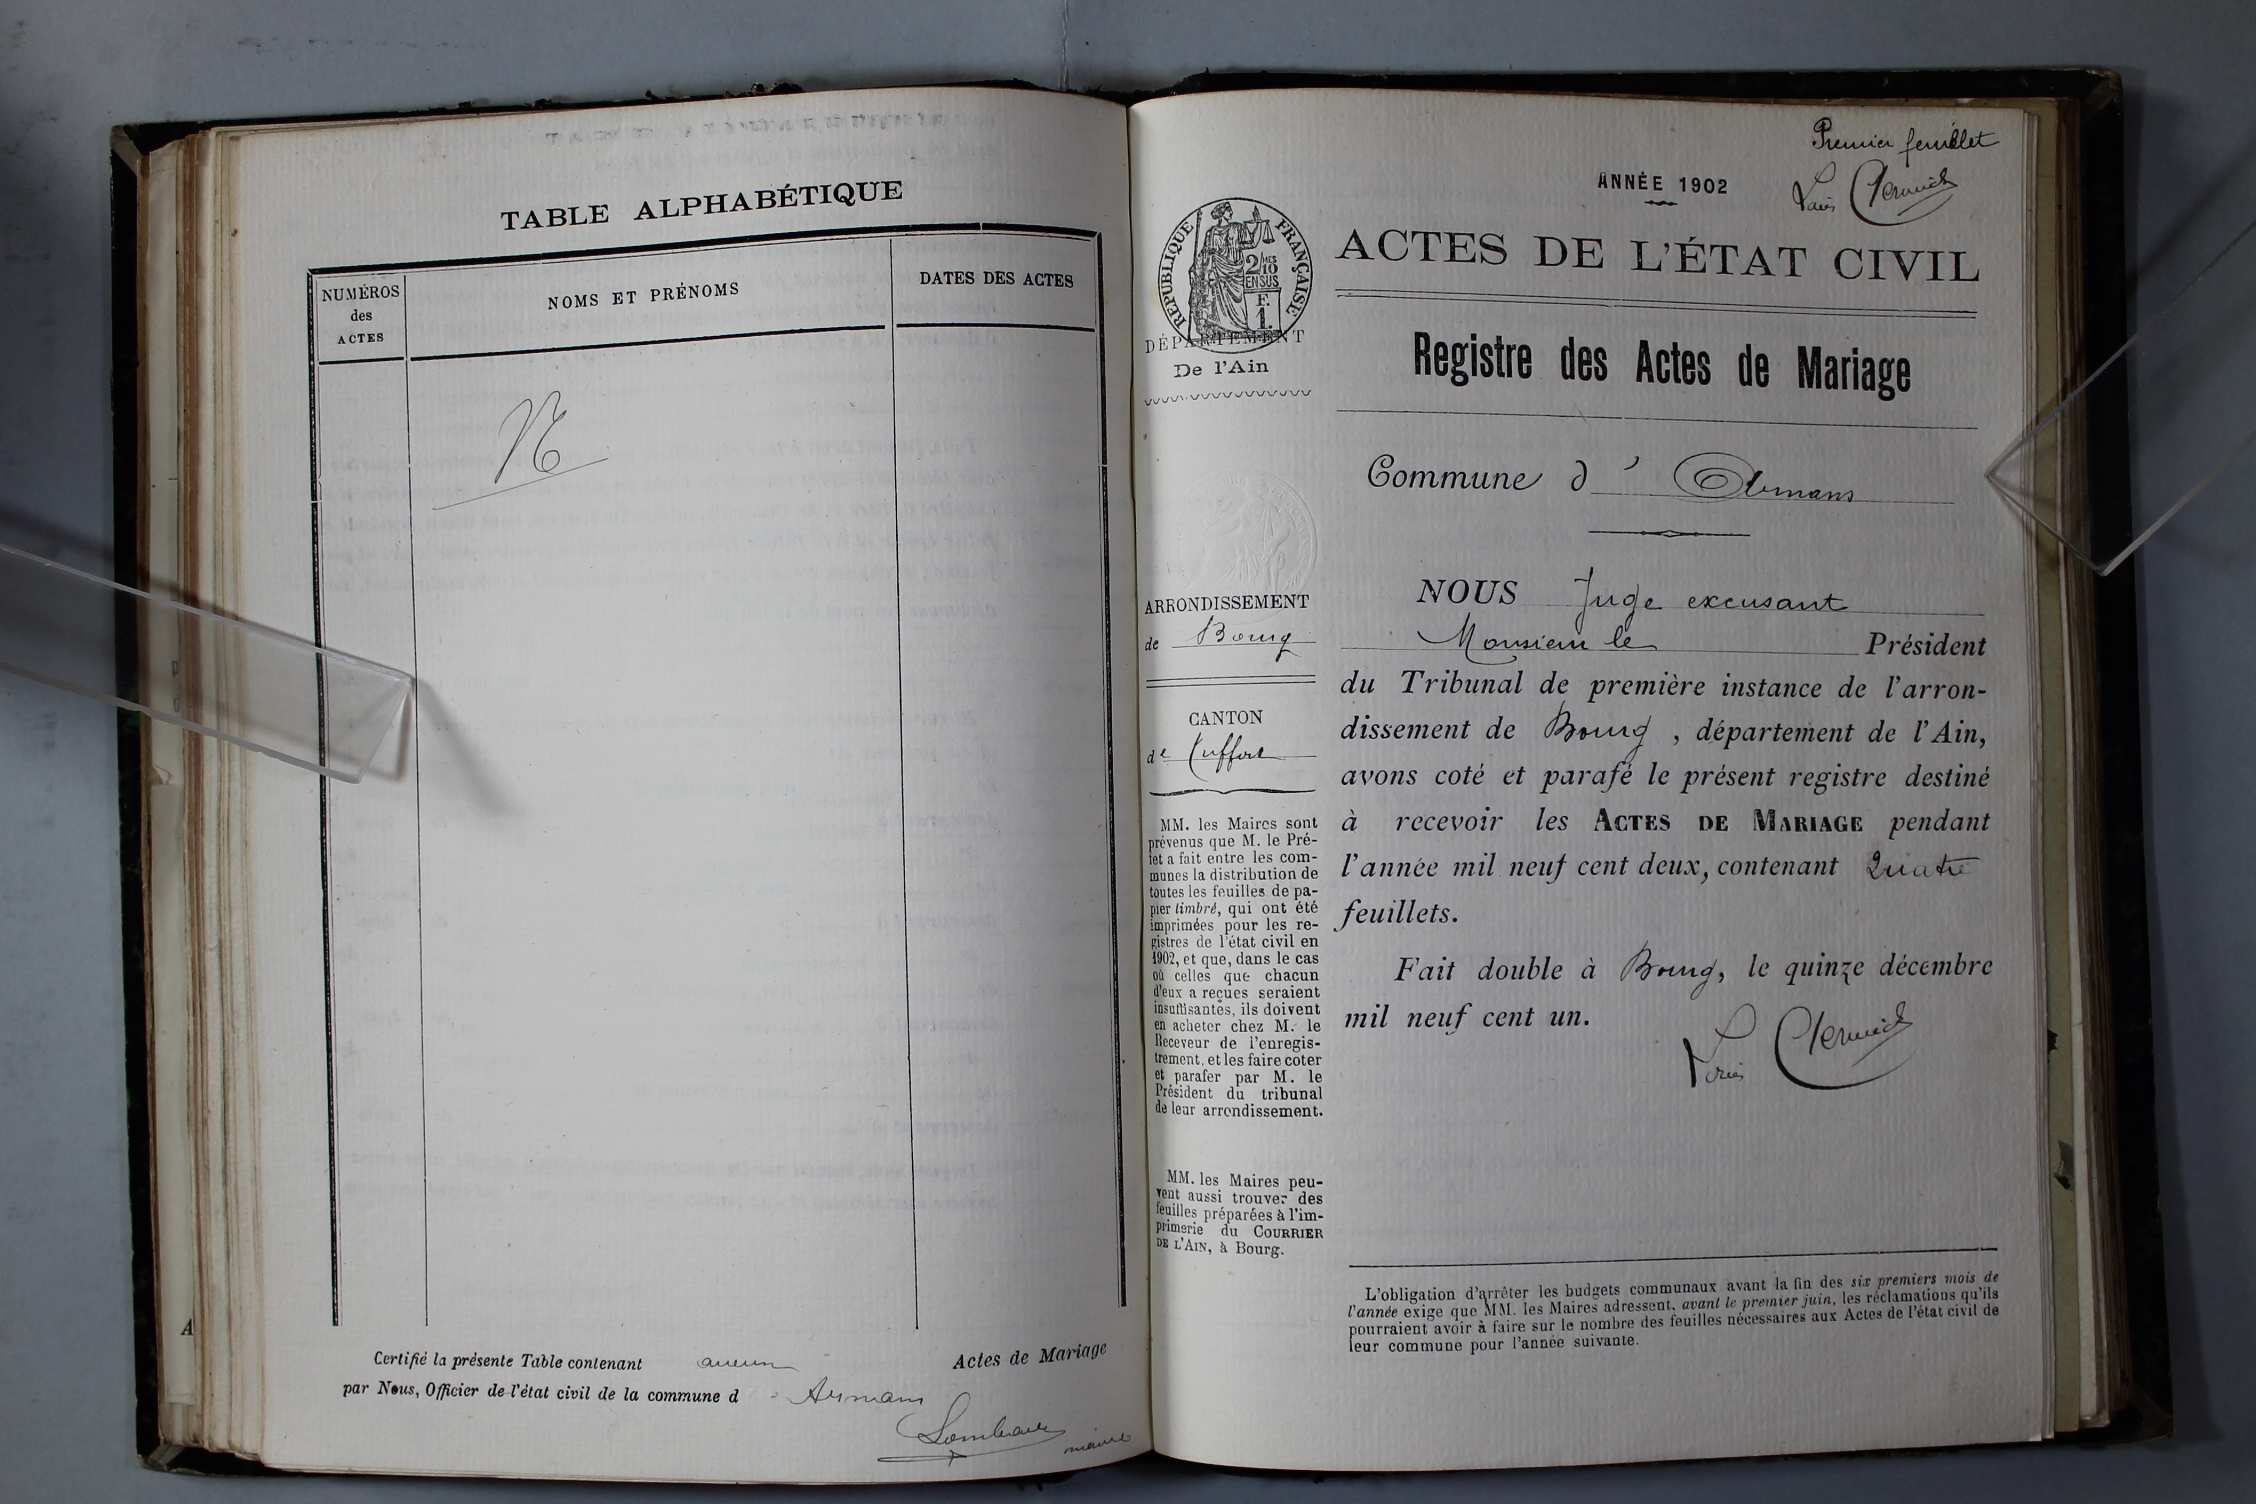 TABLE ALPHABÉTIQUE
NUMÉROS
des
ACTES
NOMS ET PRÉNOMS
DATES DES ACTES
Certifié la présente Table contenant aucun Actes de Mariage
par Nous, Officier de l'état civil de la commune d
maire
A
Premier feuillet
ANNÉE 1902
ACTES DE L'ÉTAT CIVIL
RÉPUBLIQUE FRANÇAISE
2/MES
10
EN SUS
F.
1.
DÉPARTEMENT
De l'Ain
Registre des Actes de Mariage
Commune d'
ARRONDISSEMENT
de Bourg
CANTON
de
MM. les Maires sont
prévenus que M. le Pré-
fet a fait entre les com-
munes la distribution de
toutes les feuilles de pa-
pier timbré, qui ont été
imprimées pour les re-
gistres de l'état civil en
1902, et que, dans le cas
où celles que chacun
d'eux a reçues seraient
insuffisantes, ils doivent
en acheter chez M. le
Receveur de l'enregis-
trement, et les faire coter
et parafer par M. le
Président du tribunal
de leur arrondissement.
MM. les Maires peu-
vent aussi trouver des
feuilles préparées à l'im-
primerie du COURRIER
DE L'AIN, à Bourg.
NOUS Juge excusant
Monsieur le Président
du Tribunal de première instance de l'arron-
dissement de Bourg, département de l'Ain,
avons coté et parafé le présent registre destiné
à recevoir les ACTES DE MARIAGE pendant
l'année mil neuf cent deux, contenant Quatre
feuillets.
Fait double à Bourg, le quinze décembre
mil neuf cent un.
L'obligation d'arrêter les budgets communaux avant la fin des six premiers mois de
l'année exige que MM. les Maires adressent, avant le premier juin, les réclamations qu'ils
pourraient avoir à faire sur le nombre des feuilles nécessaires aux Actes de l'état civil de
leur commune pour l'année suivante.